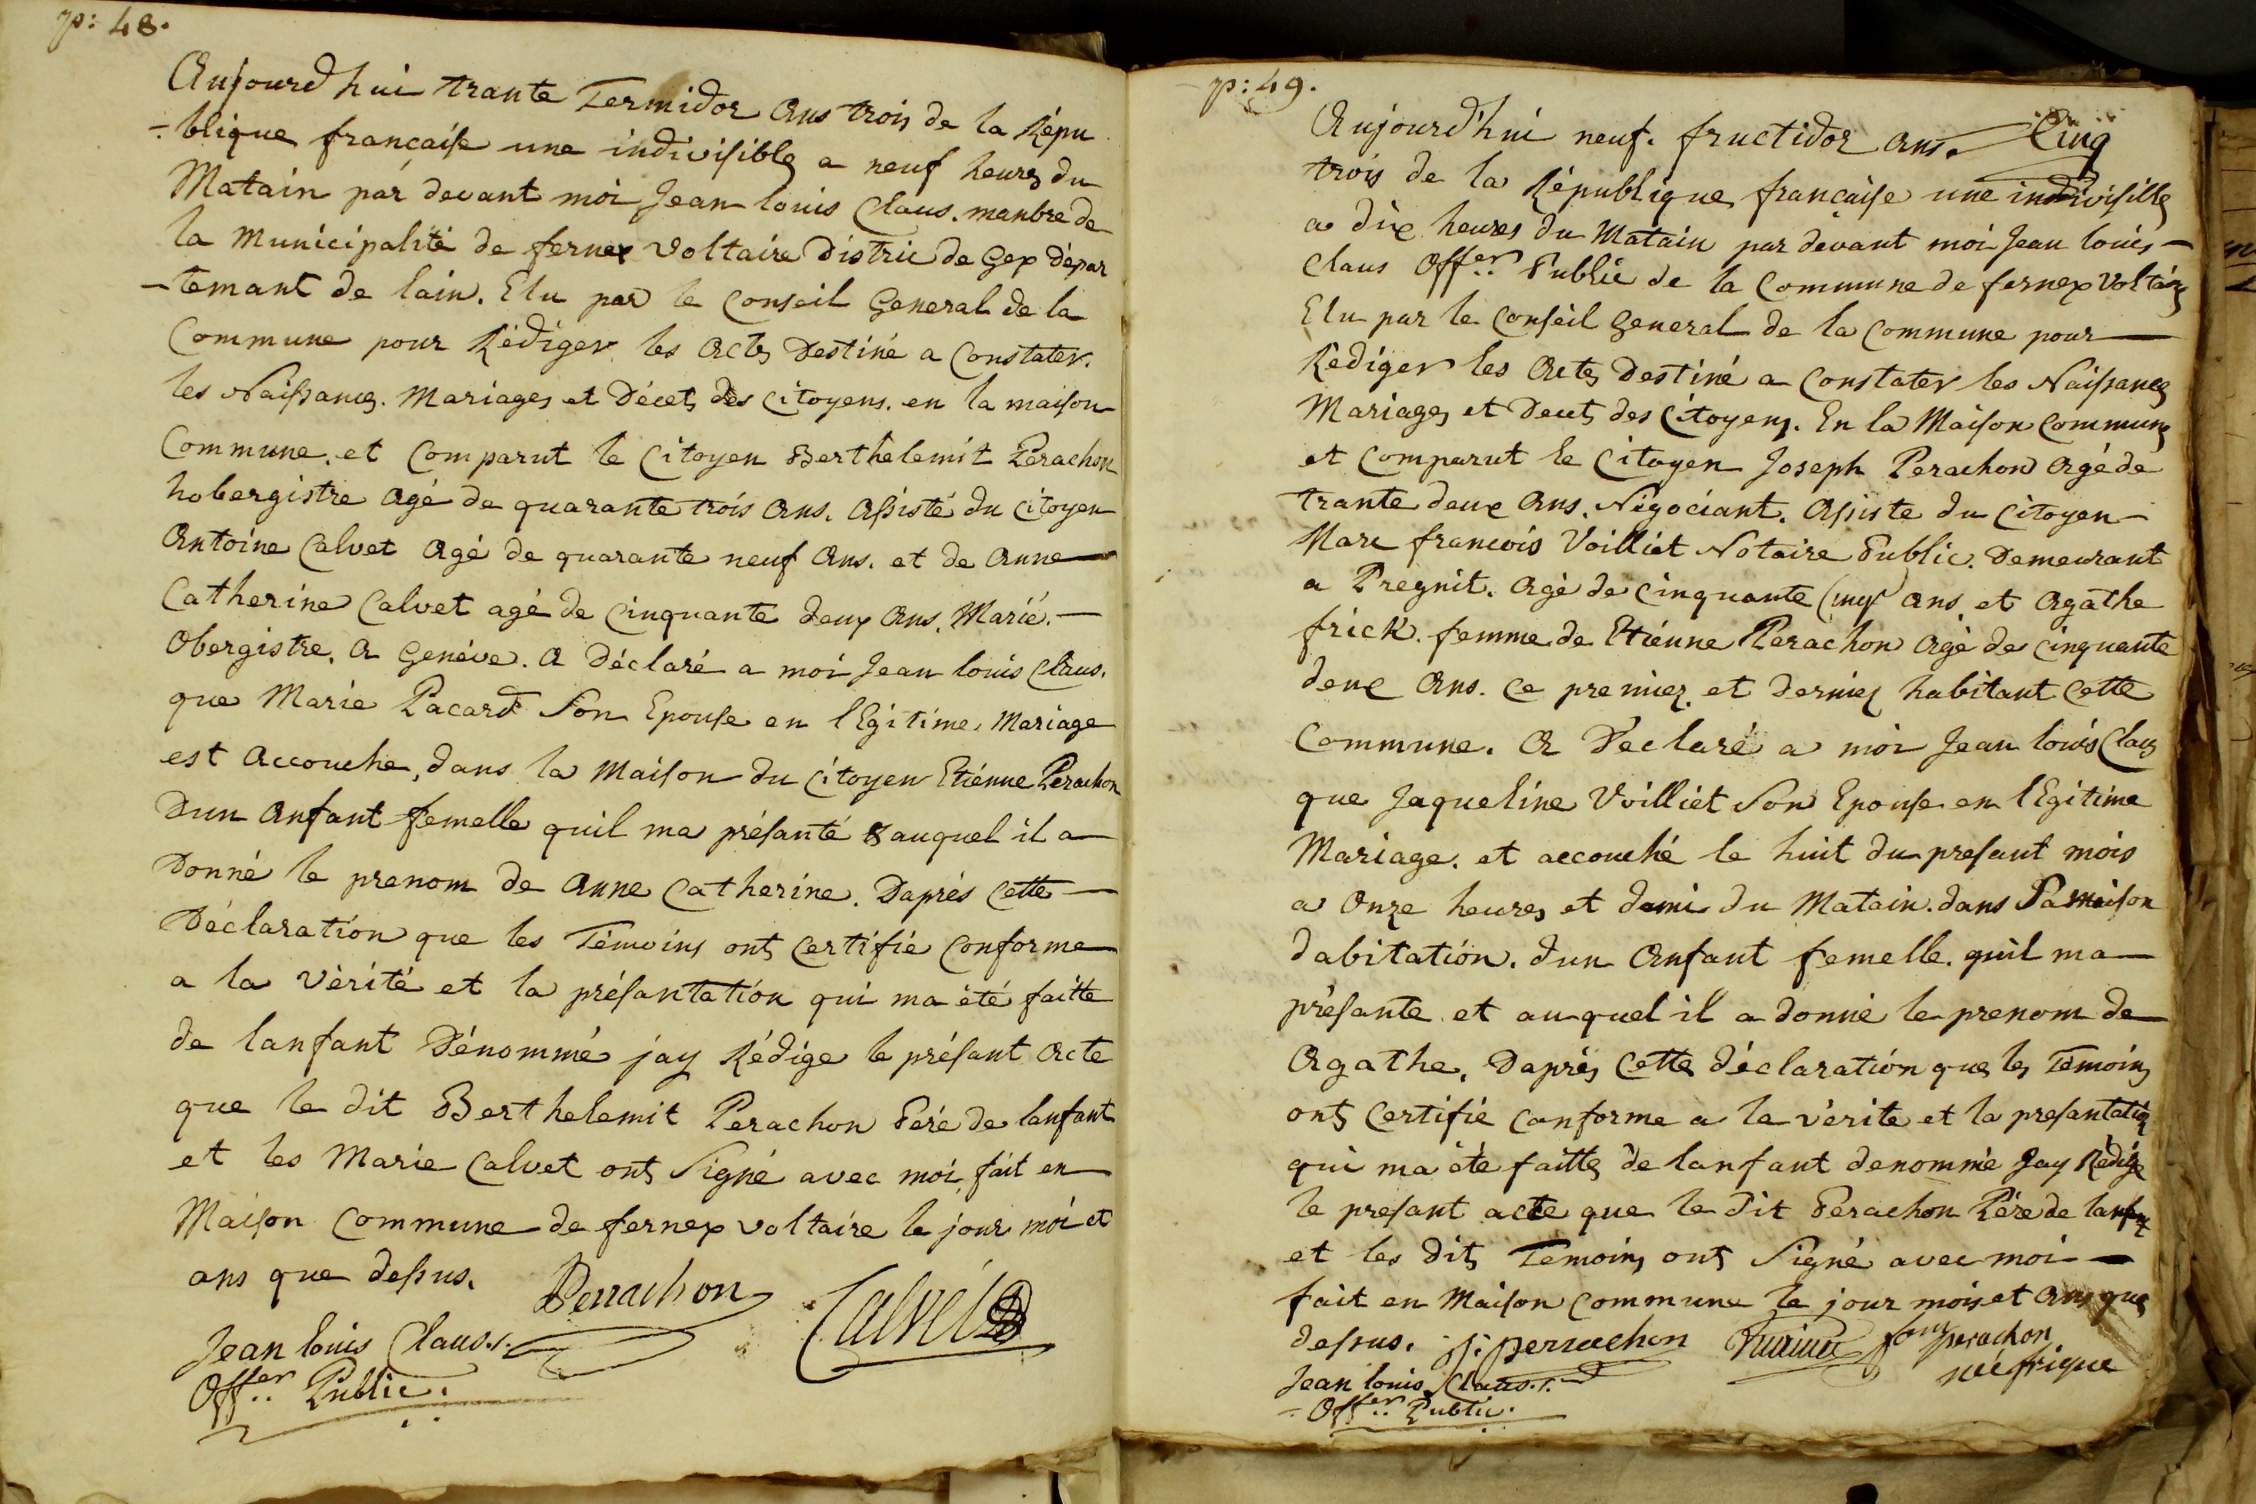 p: 48.
Aujourdhui trante Termidor Ans trois de la Répu
-blique française une indivisible a neuf heures du
Matain par devant moi Jean louis Claus. manbre de
la Municipalité de fernex Voltaire Distric de Gex Dépar
-temant de lain. Elu par le Conseil General de la
Commune pour Rédiger les Actes Destiné a Constater.
les Naissances. Mariages et Décets des Citoyens. en la maison
Commune. et Comparut le Citoyen Berthelemit Pérachon
hobergistre Agé de quarante trois Ans. Assisté du Citoyen
Antoine Calvet Agé de quarante neuf Ans. et de Anne
Catherine Calvet agé de Cinquante deux Ans. Marié.
Obergistre. A Genéve. A Déclaré a moi Jean louis Claus.
que Marie Pacard Son Epouse en lEgitime Mariage
est Accouche, dans la Maison du Citoyen Etiénne Perachon
Dun Anfant femelle quil ma présanté & auquel il a
Donné le prenom de Anne Catherine. Daprés Cette
Déclaration que les Témoins ont Certifié Conforme
a la Vérité et la présantation qui ma été faitte
de lanfant Dénommé jay Rédige le présant Acte
que le dit Berthelemit Perachon Péré de lanfant
et les Marie Calvet ont Signé avec moi fait en
Maison Commune de fernex Voltaire le jour moi et
ans que dessus.
Perrachon
Calvet
Jean louis Claus.
Offer Public.
p: 49.
Aujourd'hui neuf. fructidor Ans. Cinq
trois de la République française une indivisible
a dix heures du Matain par devant moi Jean louis
Claus Offer Public de la Commune de fernex Voltaire
Elu par le Conseil General de la Commune pour
Rédiger les Actes Destiné a Constater les Naissances
Mariages et Decets des Citoyens. En la Maison Commune
et Comparut le Citoyen Joseph Perachon Agé de
trante deux Ans. Négociant. Assiste du Citoyen
Marc francois Voilliet Notaire Public. Demeurant
a Pregnit. Agé de Cinquante Cinq Ans et Agathe
frick. femme de Etiénne Perachon Agé de Cinquante
deux Ans. Ce premier et dernier habitant Cette
Commune. A Déclaré a moi Jean louis Claus
que Jaqueline Voilliet Son Epouse en lEgitime
Mariage. et accouché le huit du presant mois
a Onze heures et demi du Matain. dans Sa maison
dabitation. dun Anfant femelle. quil ma
présante et auquel il a donné le prenom de
Agathe. Daprés Cette déclaration que les Témoins
ont Certifie Conforme a la vérite et la presantation
qui ma éte faitte de lanfant denommé Jay Rédige
le presant acte que le dit Perachon Pére de lanfant
et les dits Temoins ont Signé avec moi
fait en Maison Commune le jour mois et Ans que
dessus. j: perrachon perachon
née frique
Jean louis Claus.
Offer Public.